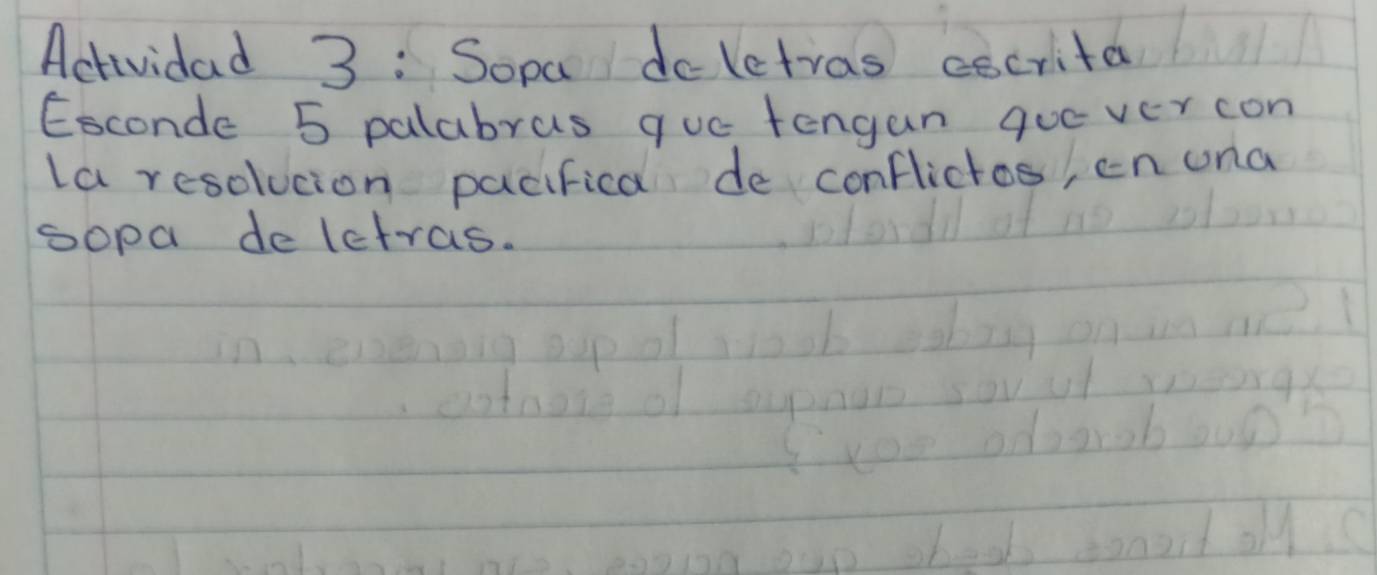 Actividad 3: Sopa de letras escrita
Esconde 5 palabras que tengan que ver con
la resolucion pacifica de conflictos, en una
sopa de letras.